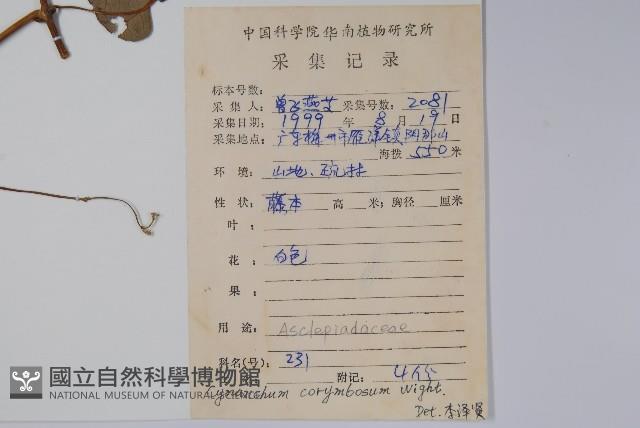 中国科学院华南植物研究所
采集记录
标本号数:
采集人: 曾飞燕 采集号数: 2081
采集日期: 1999 年 8 月 19 日
采集地点: 广东梅州市雁洋镇阴那山
海拨 550 米
环境: 山地、疏林
性状: 藤本 高 米; 胸径 厘米
叶:
花: 白色
果:
用途: Asclepiadaceae
科名(号): 231
附记: 4份
國立自然科學博物館
NATIONAL MUSEUM OF NATURAL SCIENCE
Cynanchum corymbosum Wight.
Det. 李泽贤